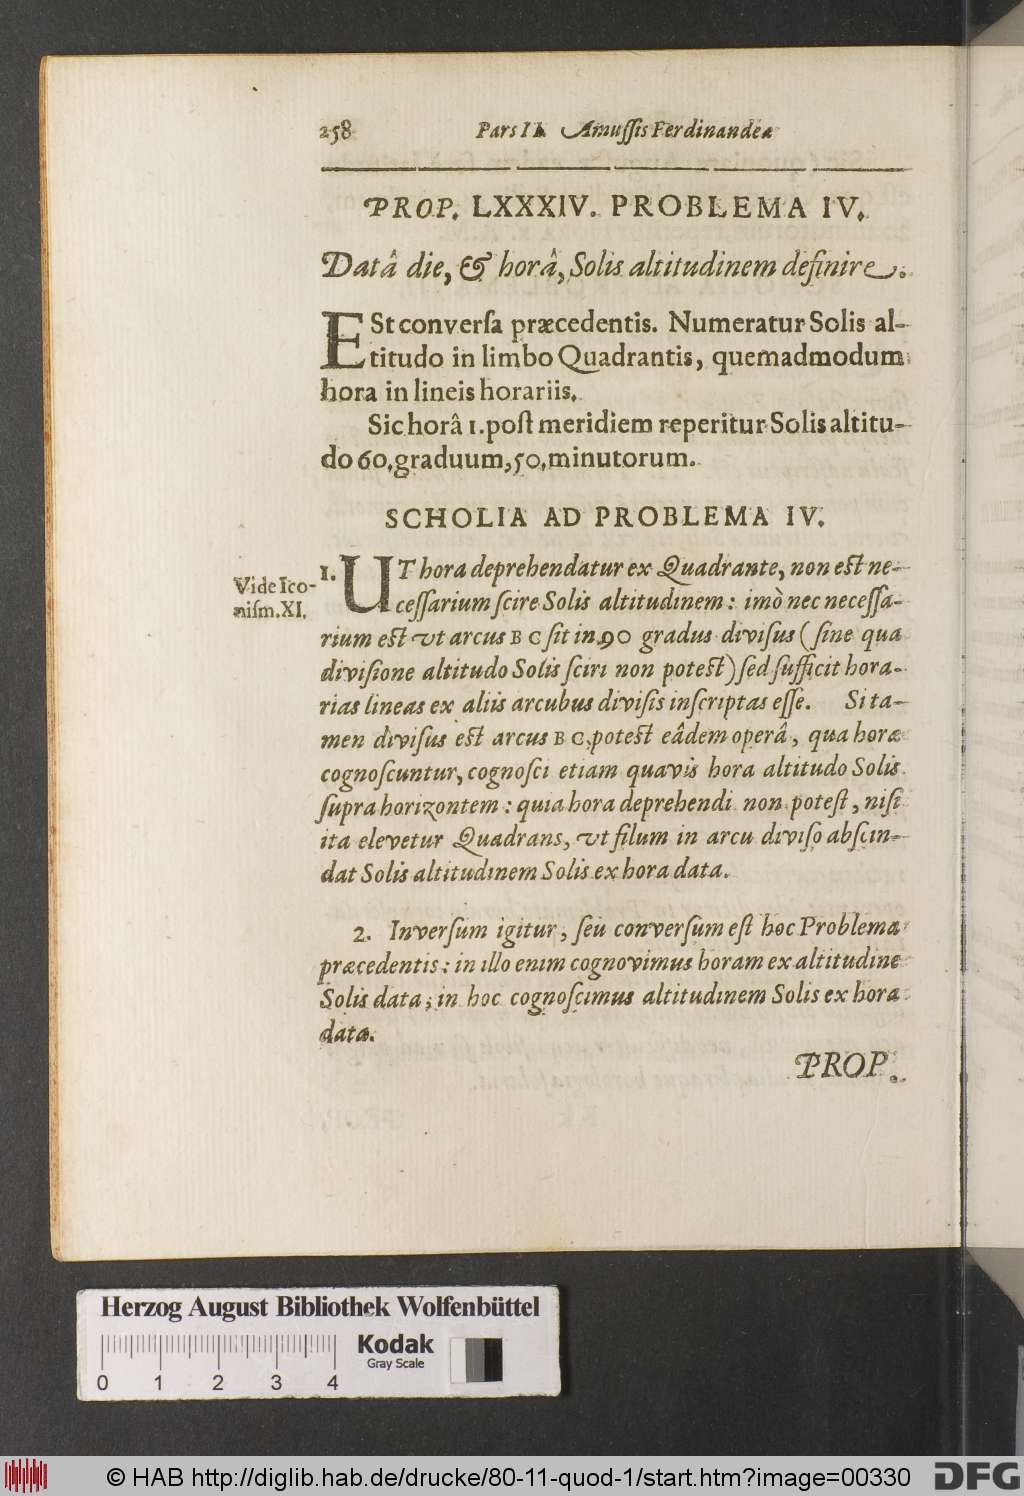 258 Pars II. Amuſſis Ferdinandea
PROP. LXXXIV. PROBLEMA IV.
Datâ die, & horâ, Solis altitudinem definire.
ESt converſa præcedentis. Numeratur Solis al-
titudo in limbo Quadrantis, quemadmodum
hora in lineis horariis.
Sic horâ 1. poſt meridiem reperitur Solis altitu-
do 60. graduum, 50. minutorum.
SCHOLIA AD PROBLEMA IV.
Vide Ico-
niſm. XI.
1. UT hora deprehendatur ex Quadrante, non eſt ne-
ceſſarium ſcire Solis altitudinem: imò nec neceſſa-
rium eſt ut arcus B C ſit in 90 gradus diviſus (ſine qua
diviſione altitudo Solis ſciri non poteſt) ſed ſufficit hora-
rias lineas ex aliis arcubus diviſis inſcriptas eſſe. Si ta-
men diviſus eſt arcus B C, poteſt eâdem operâ, qua horæ
cognoſcuntur, cognoſci etiam quavis hora altitudo Solis
ſupra horizontem: quia hora deprehendi non poteſt, niſi
ita elevetur Quadrans, ut filum in arcu diviſo abſcin-
dat Solis altitudinem Solis ex hora data.
2. Inverſum igitur, ſeu converſum eſt hoc Problema
præcedentis: in illo enim cognovimus horam ex altitudine
Solis data; in hoc cognoſcimus altitudinem Solis ex hora
data.
PROP.
Herzog August Bibliothek Wolfenbüttel
Kodak
Gray Scale
0 1 2 3 4
© HAB http://diglib.hab.de/drucke/80-11-quod-1/start.htm?image=00330
DFG